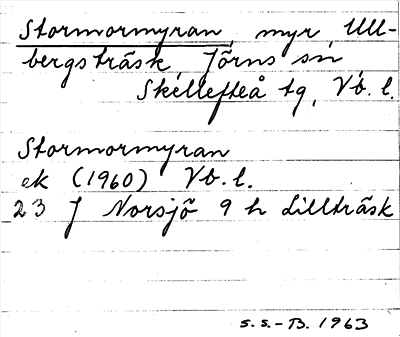 Stormormyran, myr, Ull-
bergsträsk, Jörns sn,
Skellefteå tg, Vb. l.
Stormormyran
ek (1960) Vb. l.
23 J Norsjö 9 h Lillträsk
S. S. - B. 1963